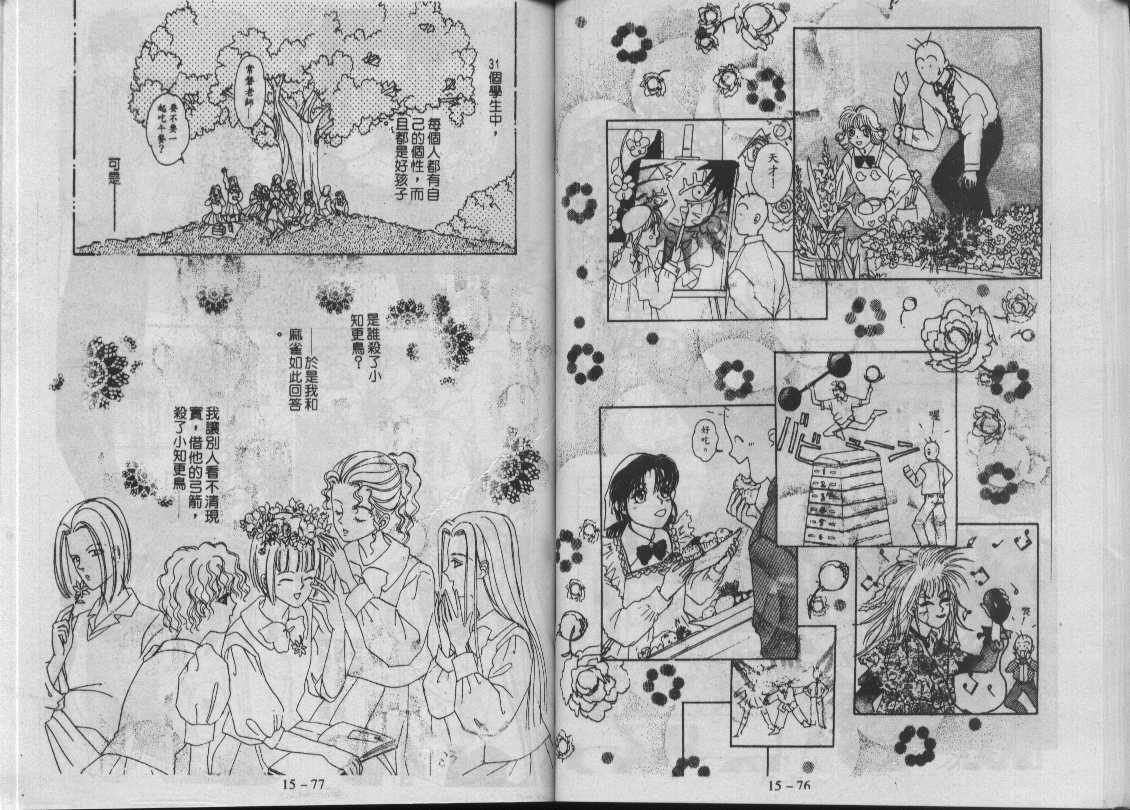 天才！
喔
好吃。
哭
15－76
31個學生中，
每個人都有自
己的個性，而
且都是好孩子
常磐老師！
要不要一
起吃午餐？
可是——
是誰殺了小
知更鳥？
——於是我和
麻雀如此回答
。
我讓別人看不清現
實，借他的弓箭，
殺了小知更鳥——
15－77